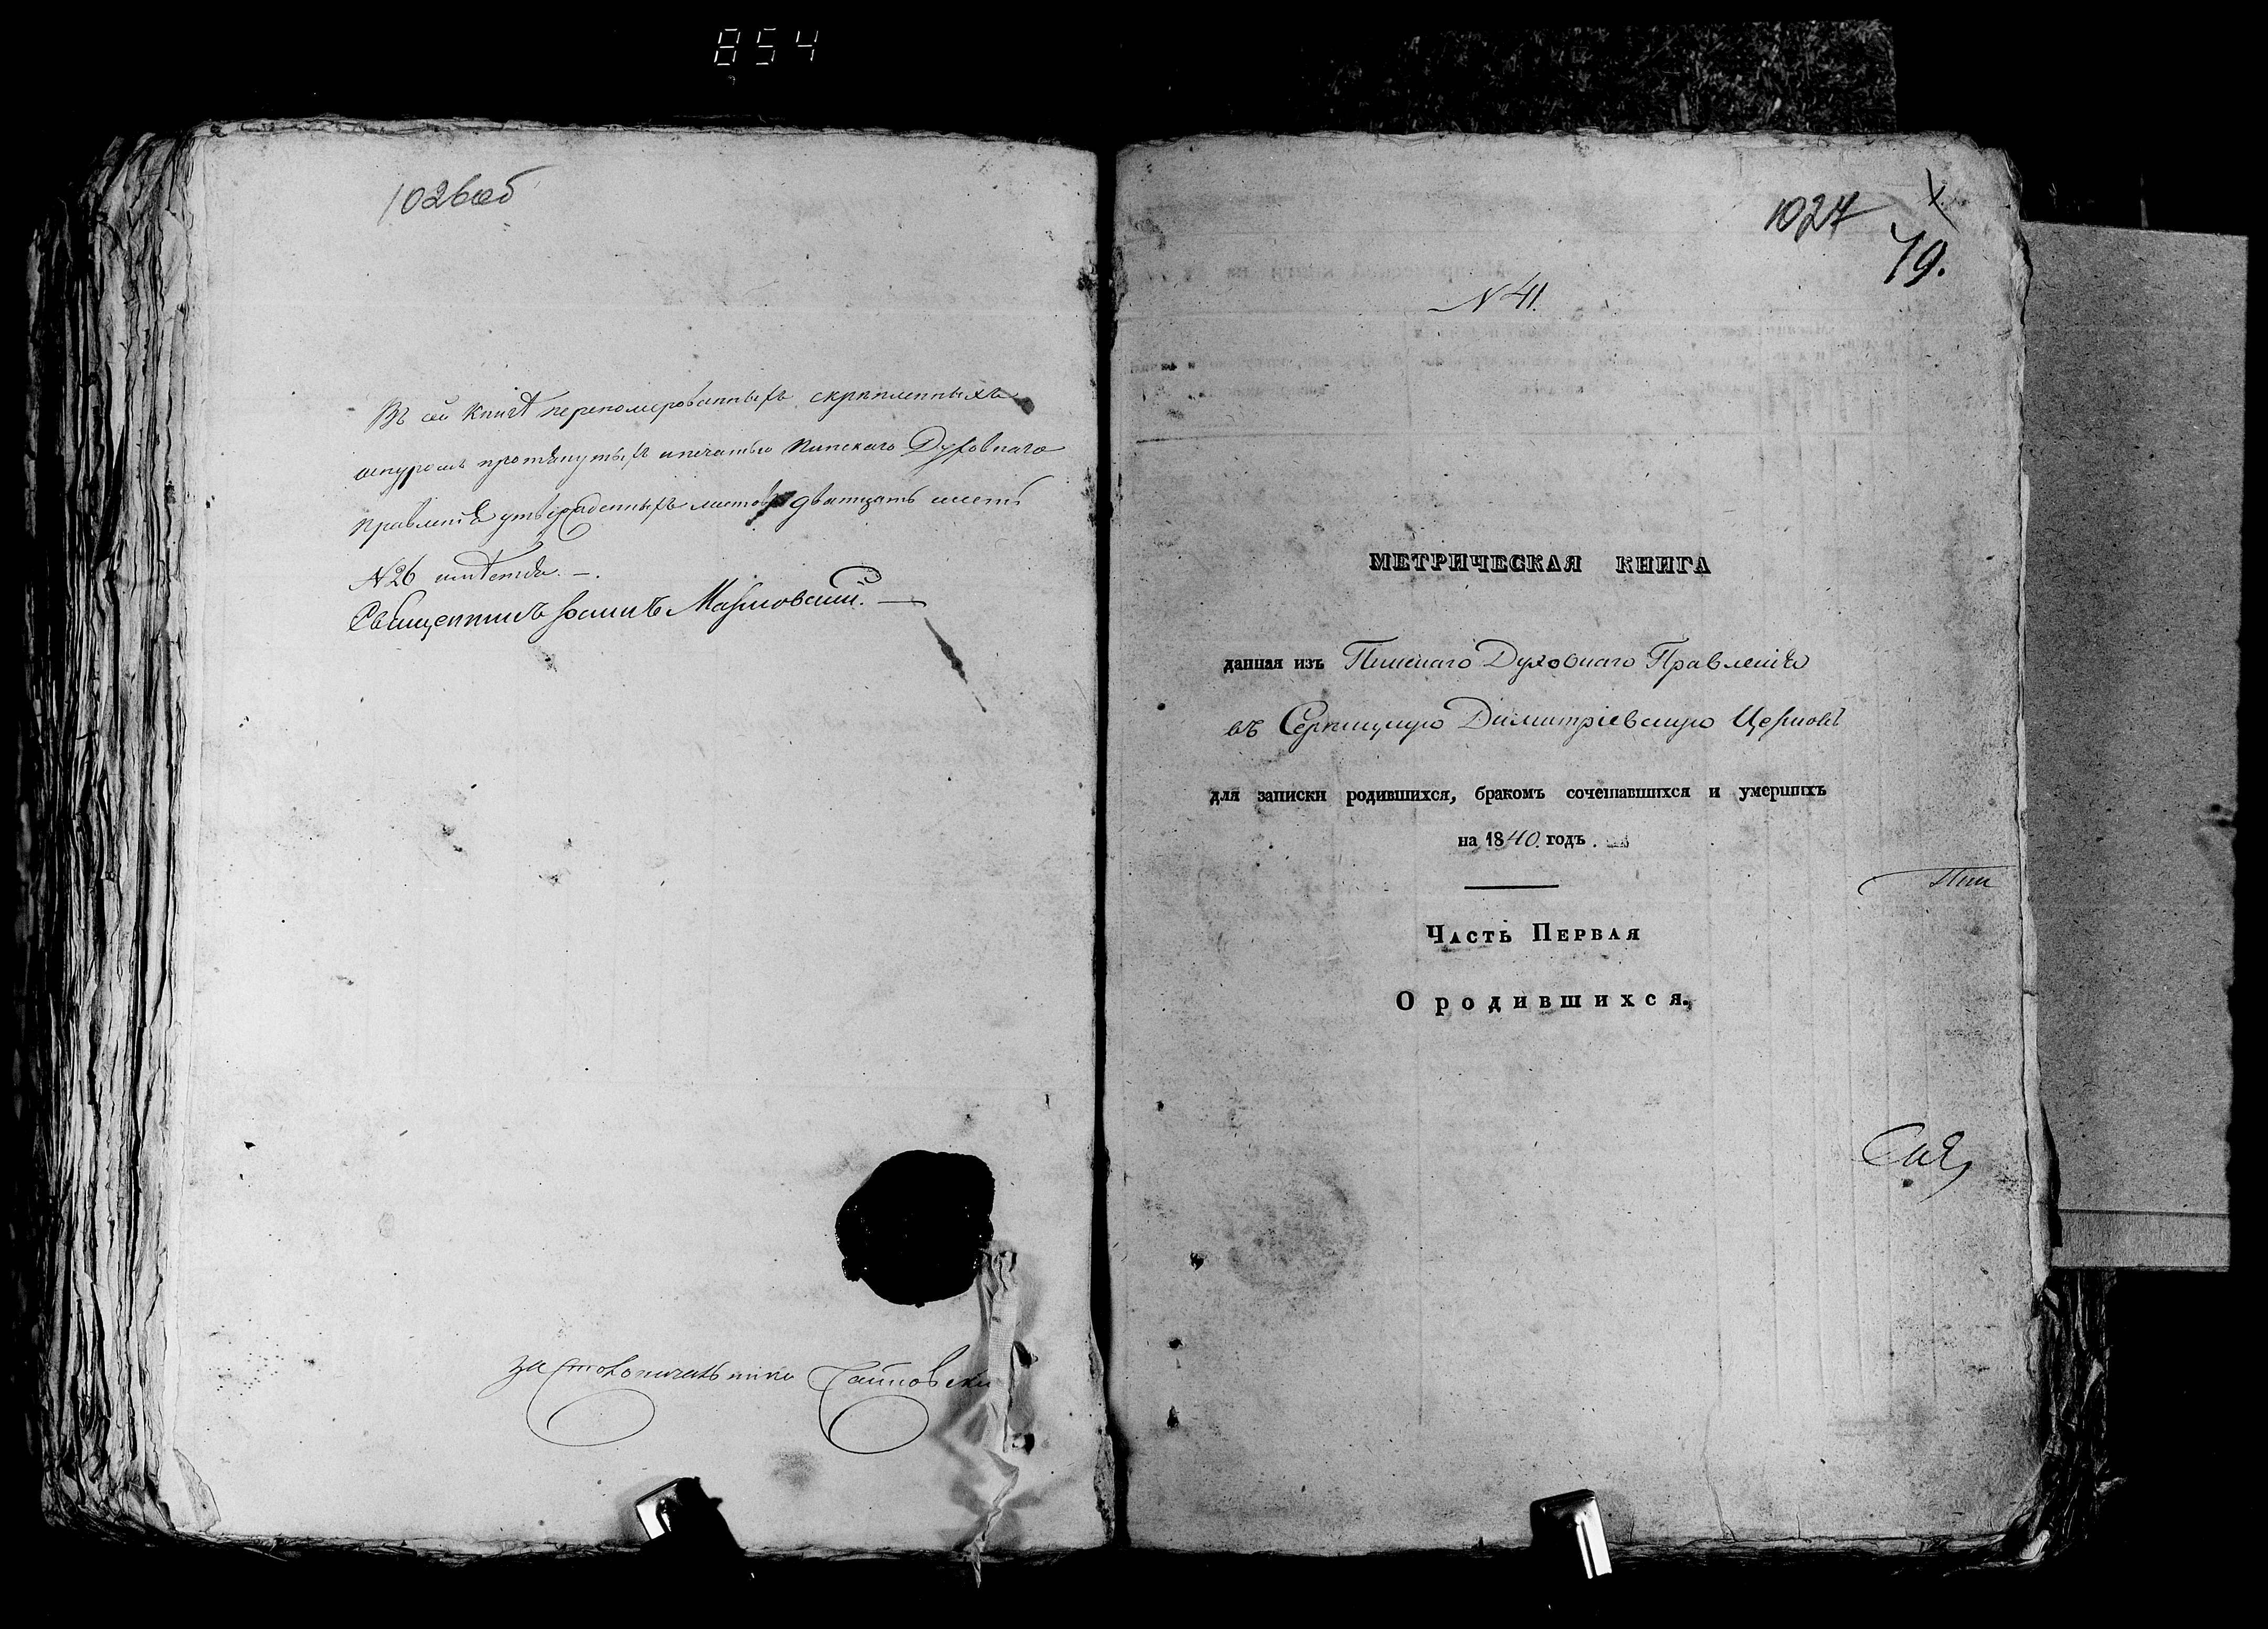 854
1026об
Въ сей Книгѣ перепомерованныхъ скрѣпленныхъ
шнуромъ протянутыхъ и печатью Пинскаго Духовнаго
Правленія утвержденныхъ листовъ дватцать шесть
N 26 имѣется. —.
Священникъ Іоаннъ
за Столоначальника
1027
79.
N 41.
МЕТРИЧЕСКАЯ КНИГА
данная изъ Пинскаго Духовнаго Правленія
въ Димитріевскую Церковь
для записки родившихся, бракомъ сочетавшихся и умершихъ
на 1840. годъ.
Пин
Часть Первая
О родившихся.